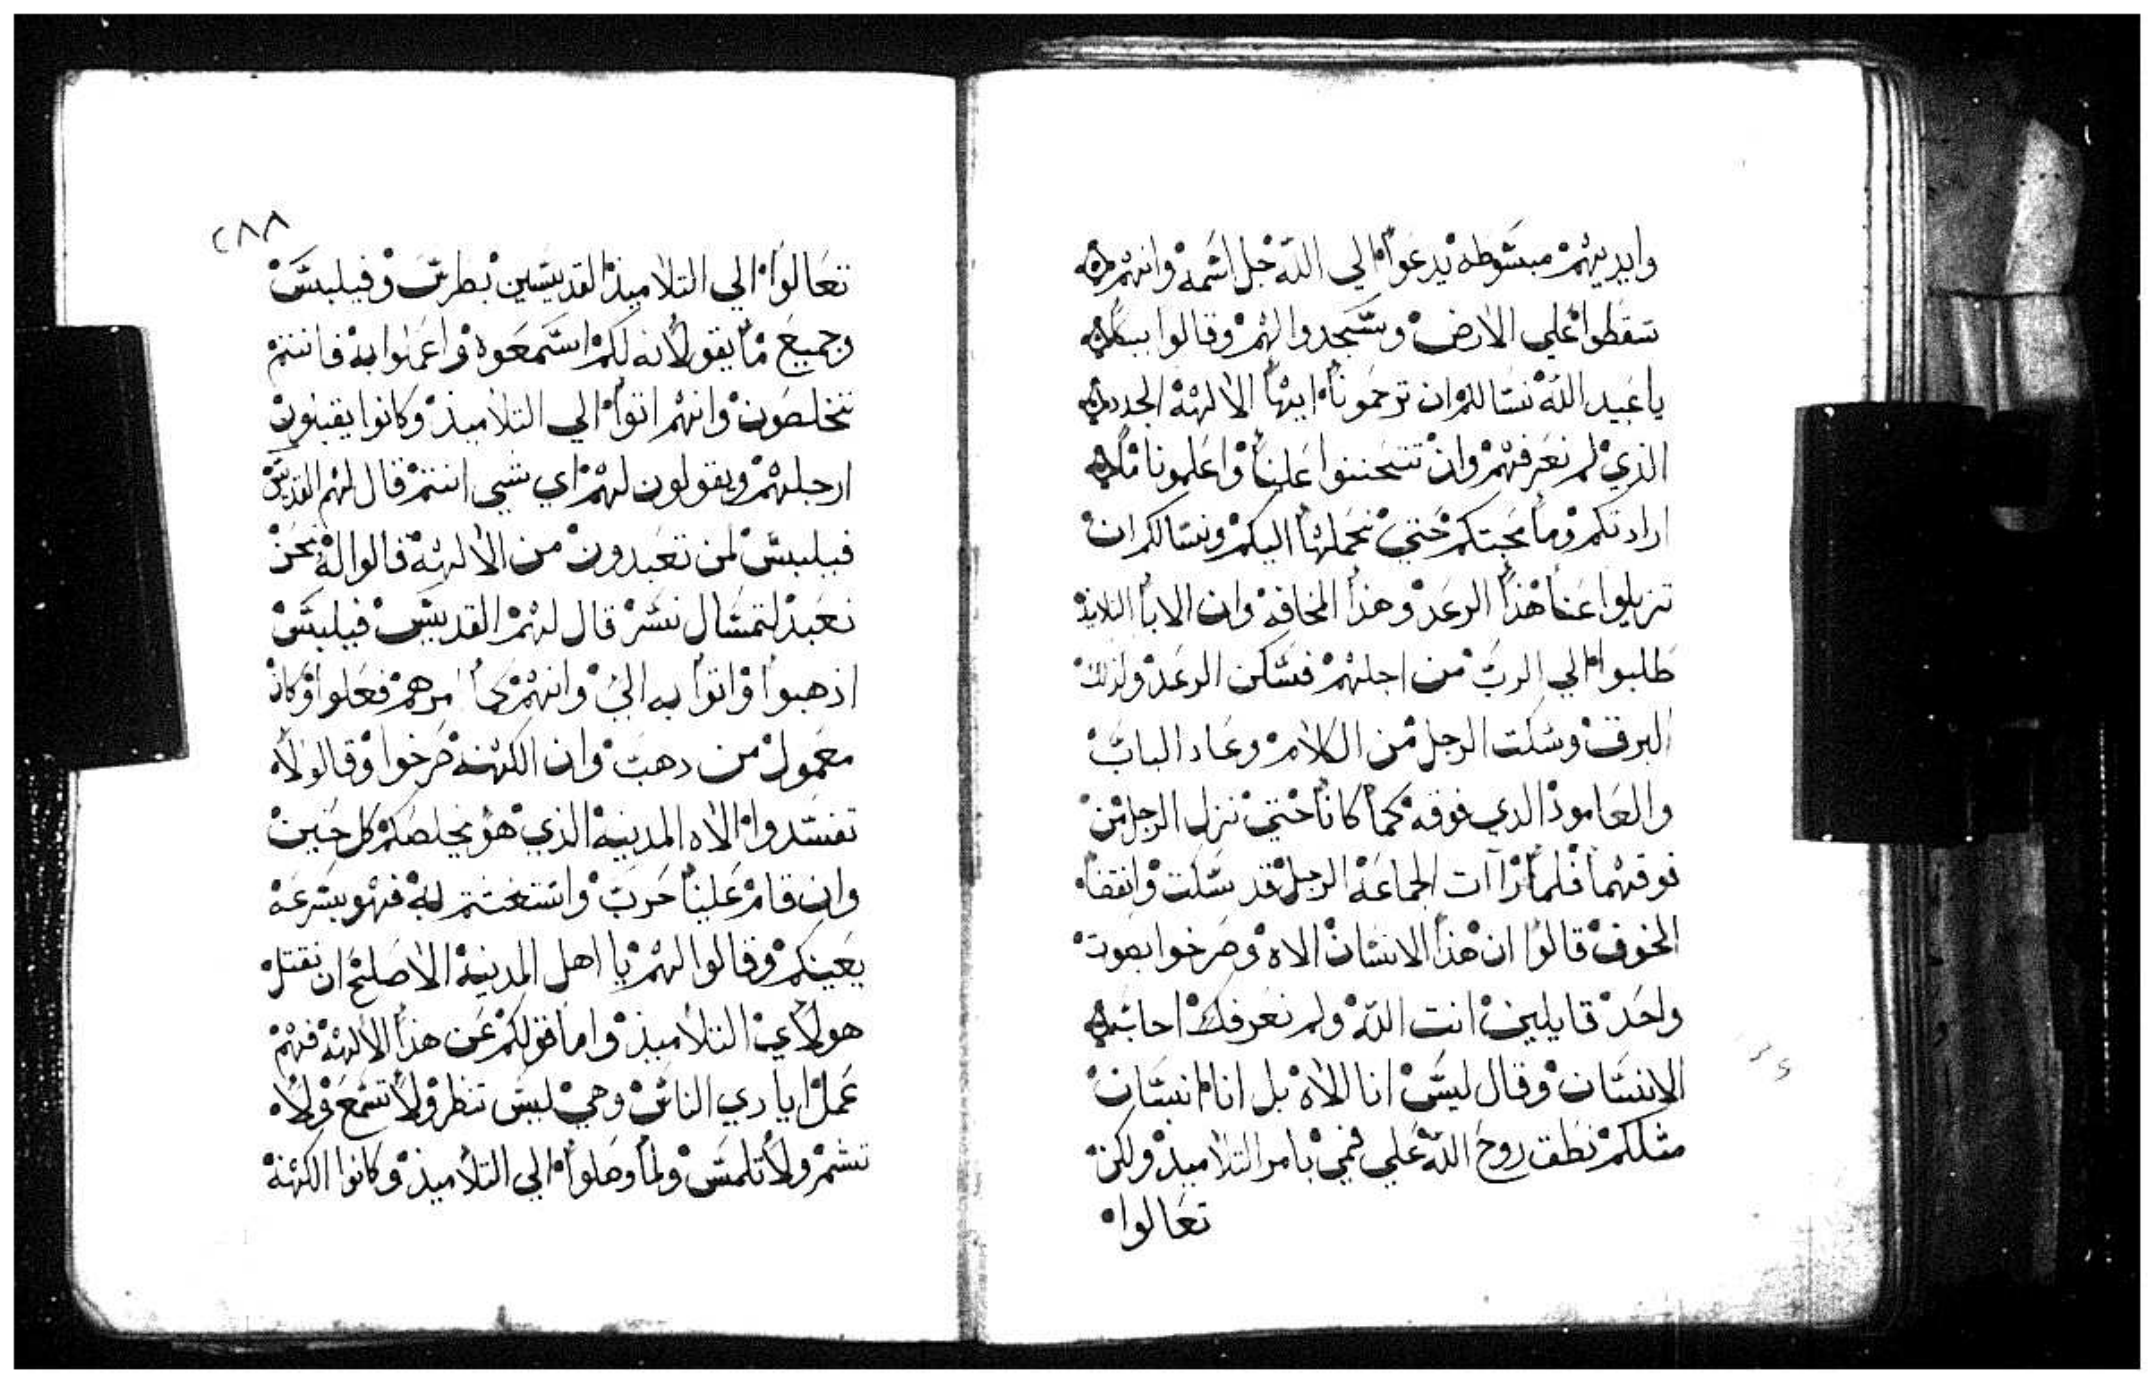 وايديهم مبسوطه يدعوا الي الله جل اسمه وانهم
سقطوا علي الارض وسجدوا لهم وقالوا
يا عبيد الله نسالكم ان ترحمونا ايها الالهة الجدد
الذي لم نعرفهم وان تتحننوا علينا واعلمونا
ارادتكم وما محبتكم حتي نحملها اليكم ونسالكم ان
تزيلوا عنا هذا الرعد وهذا المخافة وان الابا
طلبوا الي الرب من اجلهم فسكن الرعد ولذلك
البرق وسكت الرجل من الكلام وعاد الباب
والعامود الدي فوقه كما كانا حتي نزل الرجل من
فوقهما فلما راات الجماعة الرجل قد سكت وانقضا
الخوف قالوا ان هذا الانسان الاه وصرخوا بصوت
واحد قايلين انت الله ولم نعرفك
الانسان وقال ليس انا اللاه بل انا انسان
مثلكم نطق روح الله علي فمي بامر التلاميذ ولكن
تعالوا
٢٨٨
تعالوا الي التلاميذ القديسين بطرس وفيلبس
وجميع ما يقولانه لكم استمعوه واعملوا به فانتم
تخلصون وانهم اتوا الي التلاميذ وكانوا يقبلون
ارجلهم ويقولون لهم اي شي انتم قال لهم القديس
فيلبس لمن تعبدون من الالهة قالوا له نحن
نعبد لتمثال نسر قال لهم القديس فيلبس
اذهبوا واتوا به الي وانهم كما امرهم فعلوا وكان
معمول من دهب وان الكهنة صرخوا وقالوا لا
تفسدوا الاه المدينة الذي هو يخلصكم كل حين
وان قام علينا حرب واستغتتم له فهو بسرعة
يعينكم وقالوا لهم يا اهل المدينة الاصلح ان نقتل
هولاي التلاميذ واما قولكم عن هذا الالهة فهم
عمل ايادي الناس وهي ليس تنظر ولا تسمع ولا
تشم ولا تلمس ولما وصلوا الي التلاميذ وكانوا الكهنة